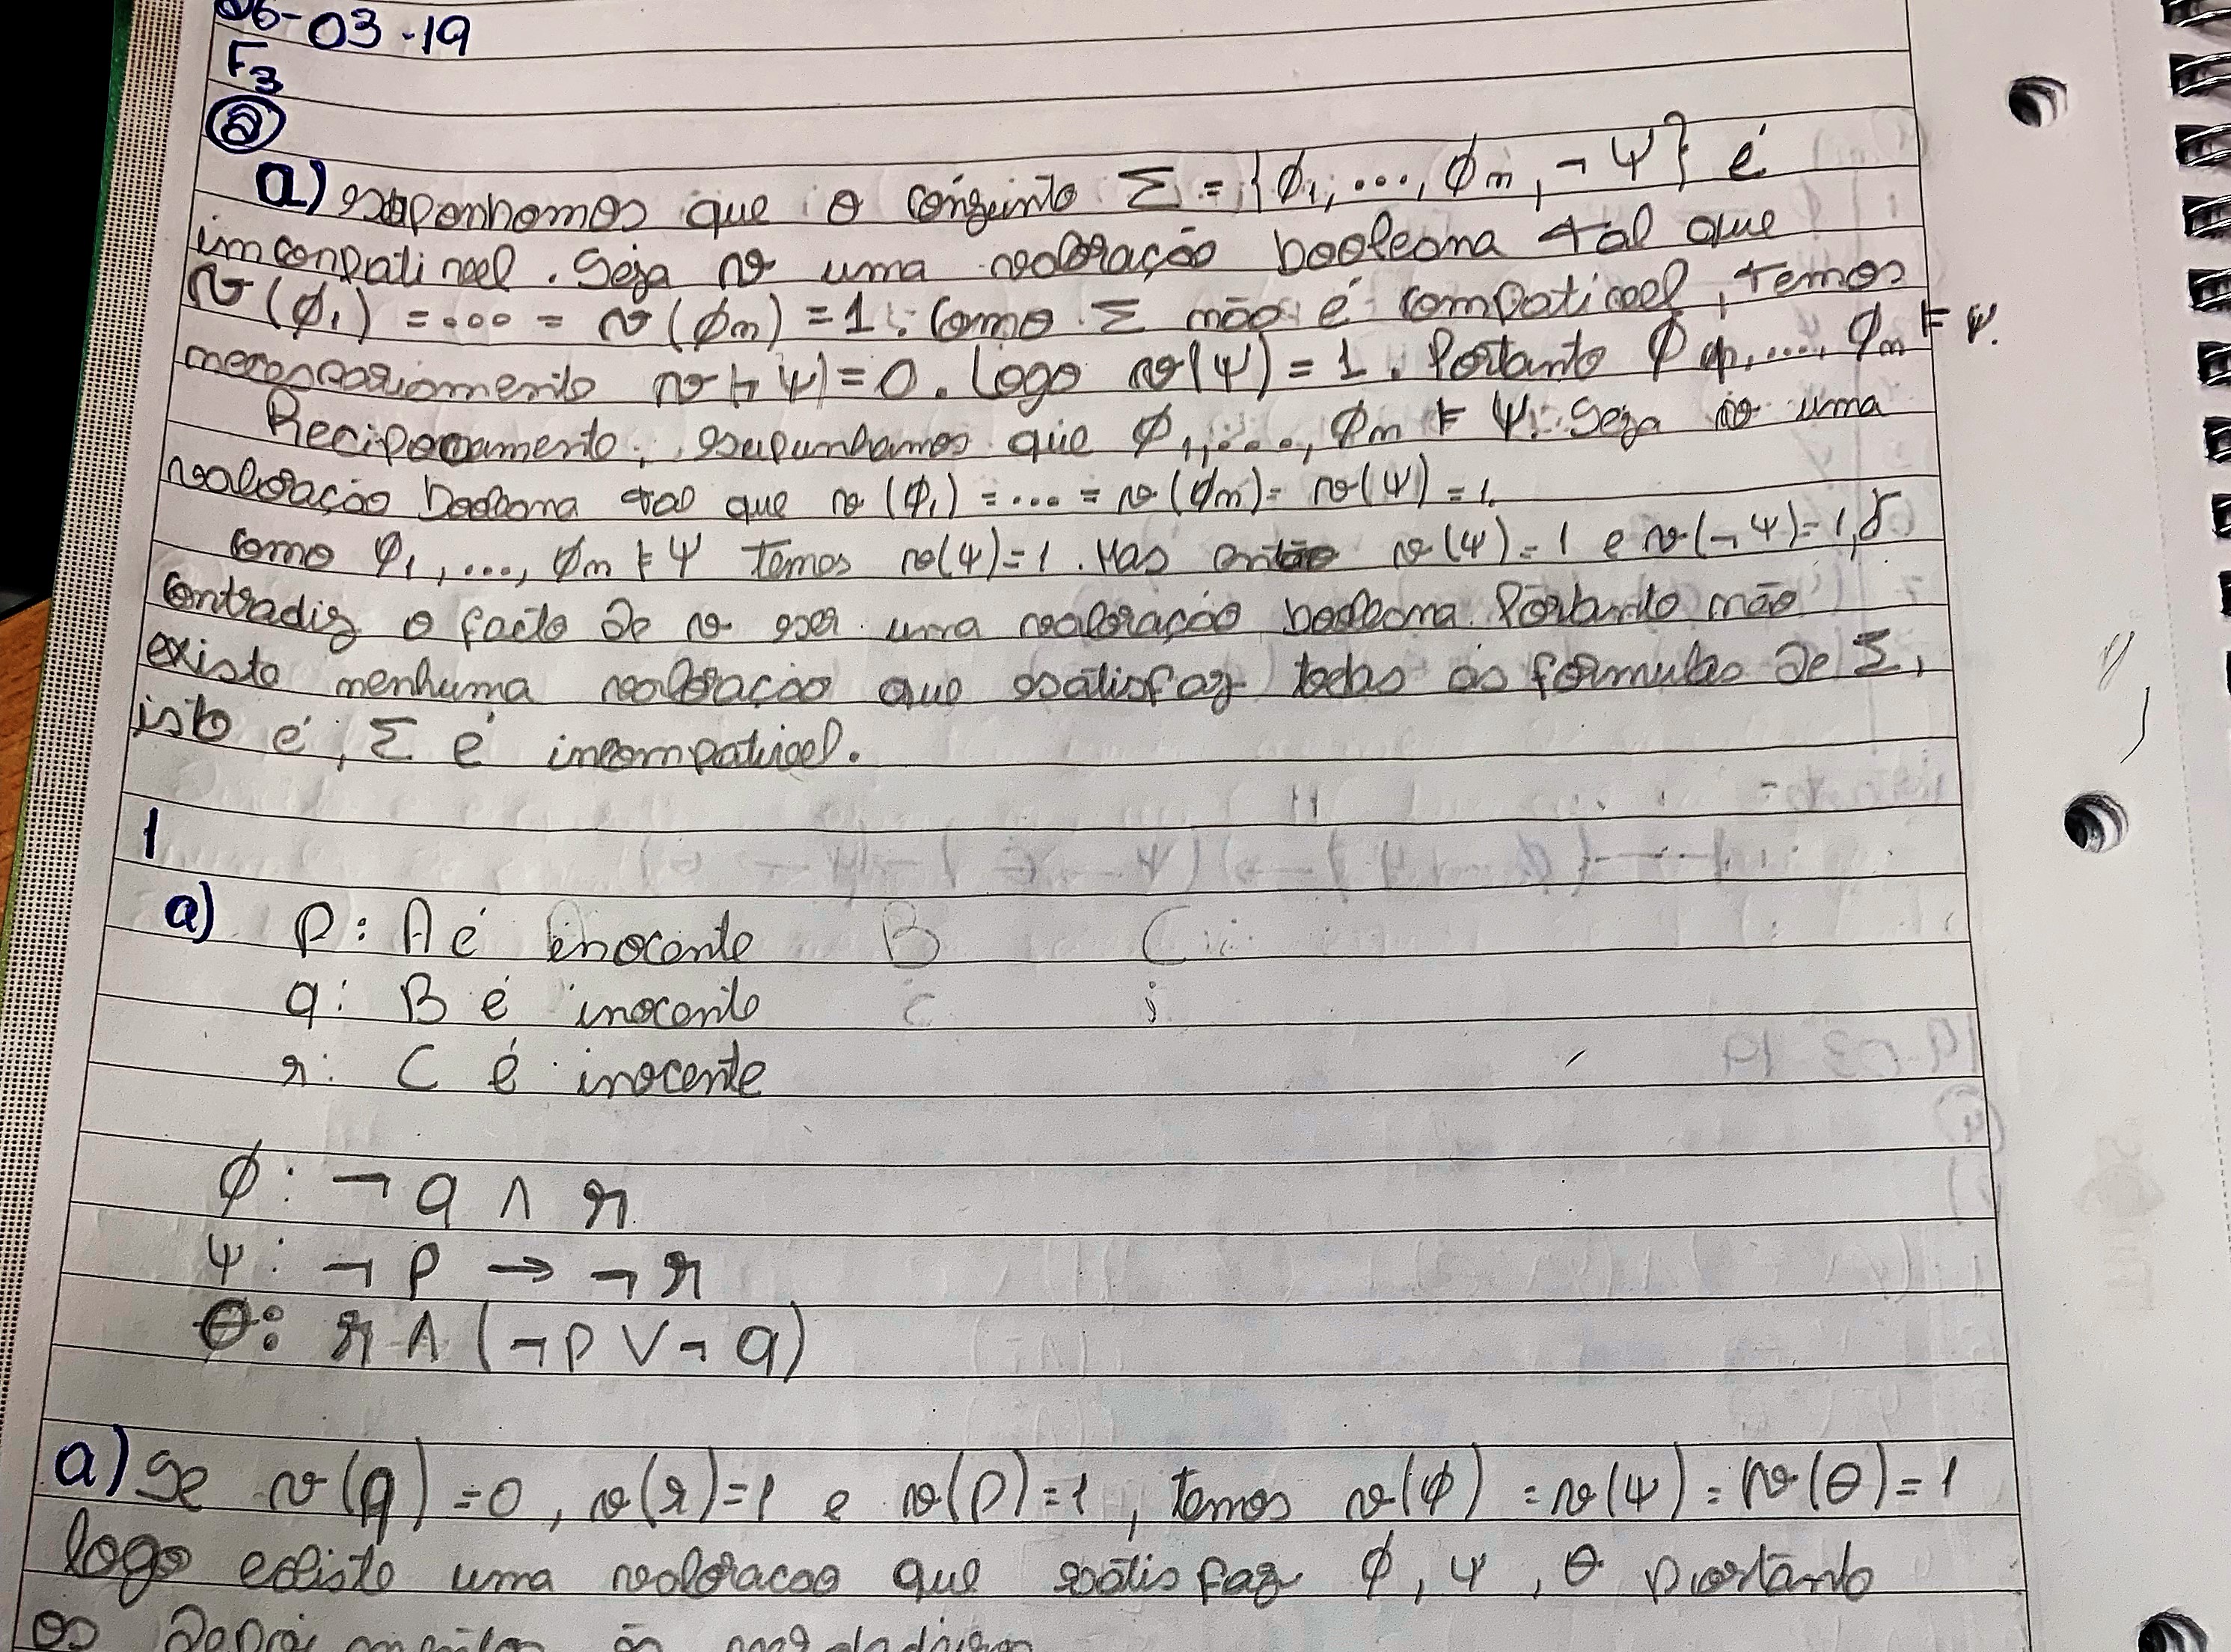 26-03-19
F3
②
a) suponhamos que o conjunto Σ = {ϕ₁, ..., ϕₙ, ¬ψ} é
imconpativel. Seja v uma valoração booleana tal que
v(ϕ₁) = ... = v(ϕₙ) = 1. Como Σ não é compativel, temos
necessariamente v(¬ψ) = 0. Logo v(ψ) = 1. Portanto ϕ₁, ..., ϕₙ ⊨ ψ.
Reciprocamente, supunhamos que ϕ₁, ..., ϕₙ ⊨ ψ. Seja v uma
valoração booleana tal que v(ϕ₁) = ... = v(ϕₙ) = v(ψ) = 1.
como ϕ₁, ..., ϕₙ ⊨ ψ temos v(ψ) = 1. Mas então v(ψ) = 1 e v(¬ψ) = 1,
contradiz o facto de v ser uma valoração booleana. Portanto não
existe nenhuma valoração que satisfaz todas as formulas de Σ,
isto é, Σ é incompativel.
1
a) p: A é inocente B C i
q: B é inocente i
r: C é inocente
ϕ: ¬q ∧ r
ψ: ¬p → ¬r
θ: r ∧ (¬p ∨ ¬q)
a) Se v(q) = 0, v(r) = 1 e v(p) = 1, temos v(ϕ) = v(ψ) = v(θ) = 1
logo existe uma valoracao que satisfaz ϕ, ψ, θ portanto
os